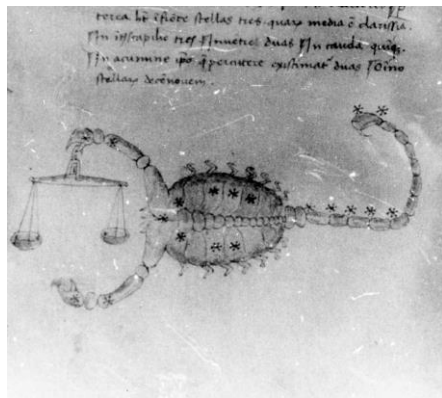 terea ht i frōte stellas tres. quaꝝ media ē clarissīa.
In itscapilio tres In uētre duas In cauda quīqꝫ.
In acumine ipō q̄ percutere existimat̄ duas oīno
stellaꝝ decēnouem.